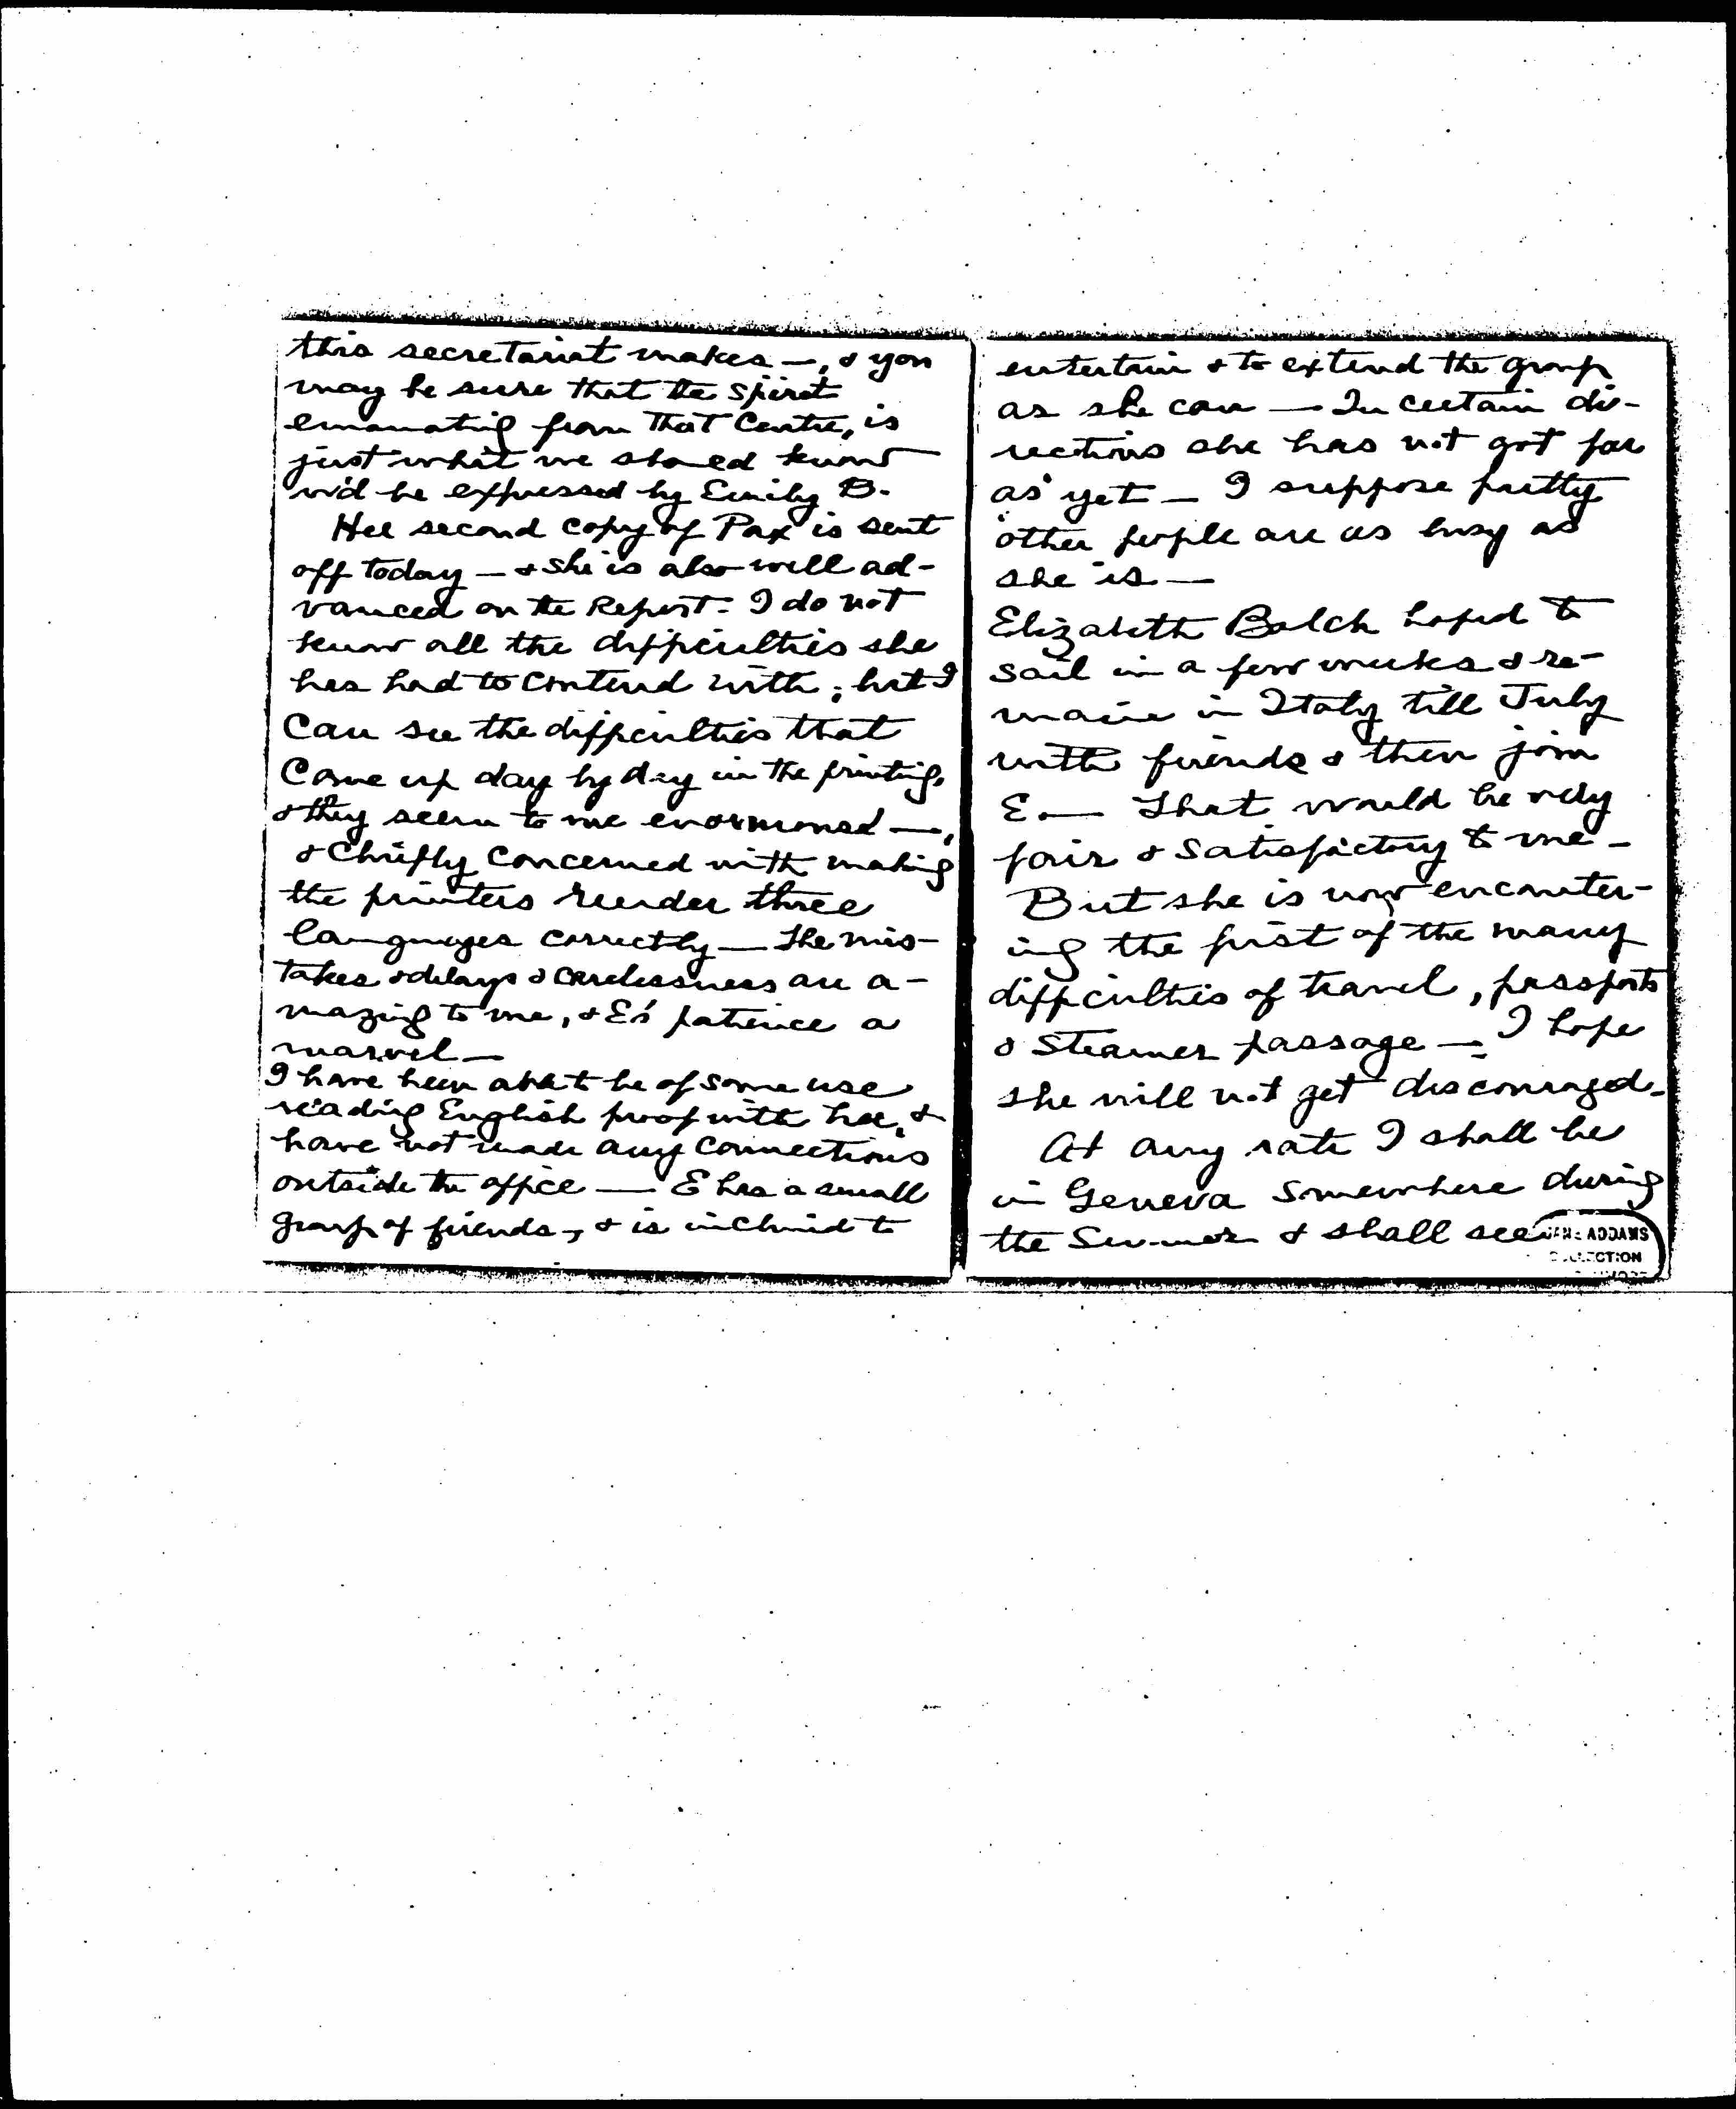 this secretariat makes —, & you
may be sure that the spirit
emanating from that Centre, is
just what we should know
w'd be expressed by Emily B.
Her second copy of Pax is sent
off today — & she is also well ad-
vanced on the Report. I do not
know all the difficulties she
has had to contend with; but I
can see the difficulties that
Come up day by day in the printing,
& they seem to me enormous —,
& Chiefly concerned with making
the printers render three
languages correctly — The mis-
takes & delays & carelessness are a-
mazing to me, & E's patience a
marvel —
I have been able to be of some use
reading English proof with her, &
have not made any connections
outside the office — E has a small
group of friends —, & is inclined to
entertain & to extend the group
as she can — In certain di-
rections she has not got far
as yet — I suppose partly
other people are as busy as
she is —
Elizabeth Balch hoped to
sail in a few weeks & re-
main in Italy till July
with friends & then join
E. — That would be very
fair & satisfactory to me —
But she is now encounter-
ing the first of the many
difficulties of travel, passports
& steamer passage — I hope
she will not get discouraged.
At any rate I shall be
in Geneva somewhere during
the Summer & shall see
JANE ADDAMS
COLLECTION